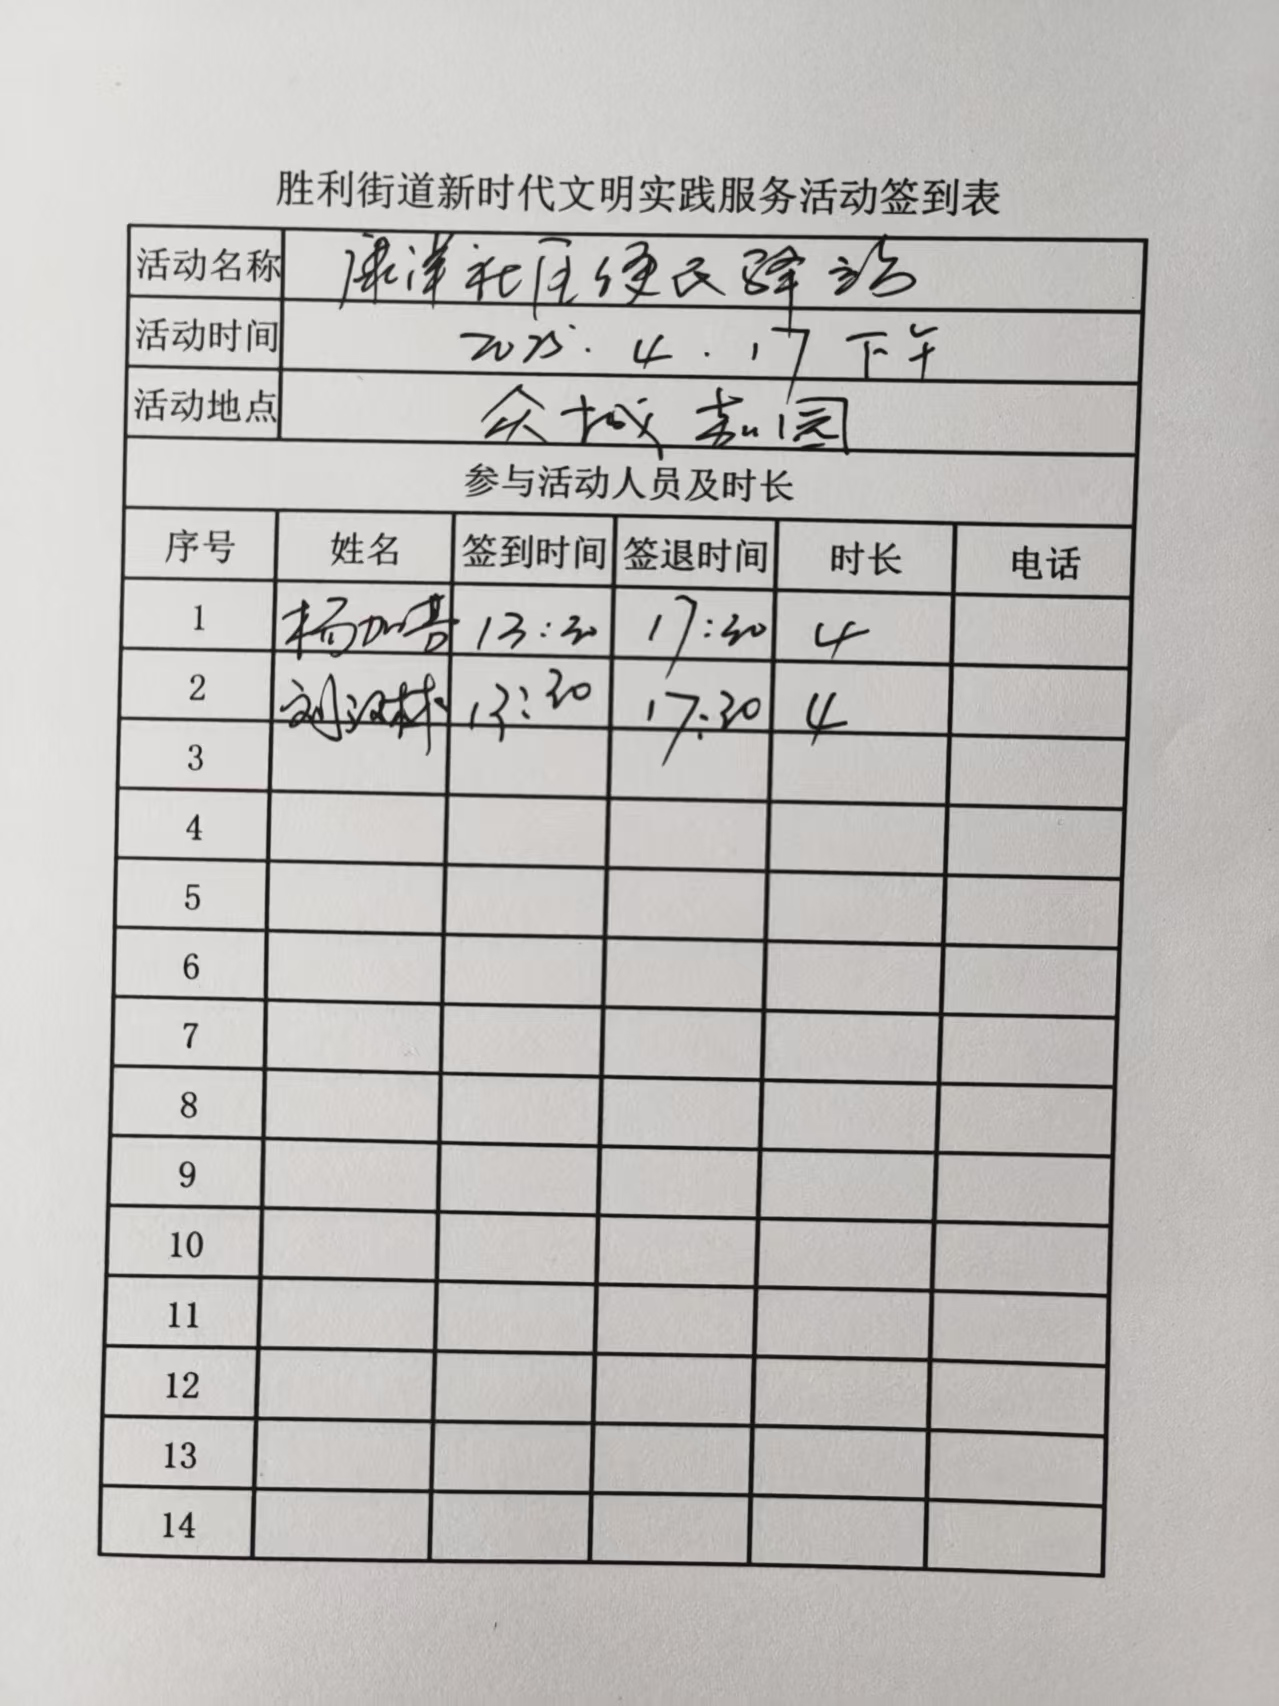 胜利街道新时代文明实践服务活动签到表
活动名称 康洋社区便民驿站
活动时间 2025.4.17 下午
活动地点 众城 园
参与活动人员及时长
序号 姓名 签到时间 签退时间 时长 电话
1 杨加善 13:30 17:30 4
2 刘汉林 13:30 17:30 4
3
4
5
6
7
8
9
10
11
12
13
14